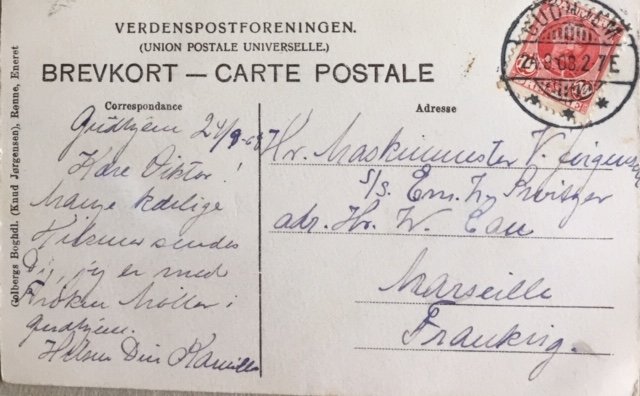 VERDENSPOSTFORENINGEN.
(UNION POSTALE UNIVERSELLE.)
BREVKORT — CARTE POSTALE
Correspondance
Gudhjem 24/9-08
Kære Viktor!
Mange kærlige
Hilsner sendes
Dig, jeg er med
Frøken Møller i
Gudhjem.
Hilsen Din Kamilla
Adresse
Hr. Maskinmester V. Jørgensen
S/S.
adr. Hr. W.
Marseille
Frankrig.
GUDHJEM
24.9.08.2-7E
10
Colbergs Boghdl. (Knud Jørgensen), Rønne, Eneret